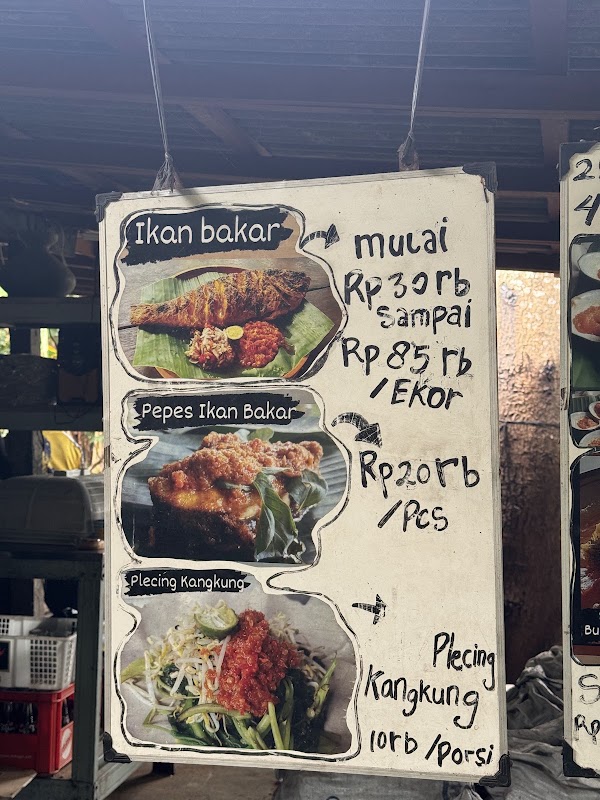 Ikan bakar
mulai
Rp 30 rb
sampai
Rp 85 rb
/EKor
Pepes Ikan Bakar
Rp20rb
/Pcs
Plecing Kangkung
Plecing
Kangkung
10rb /Porsi
2
4
Bu
S
Rp